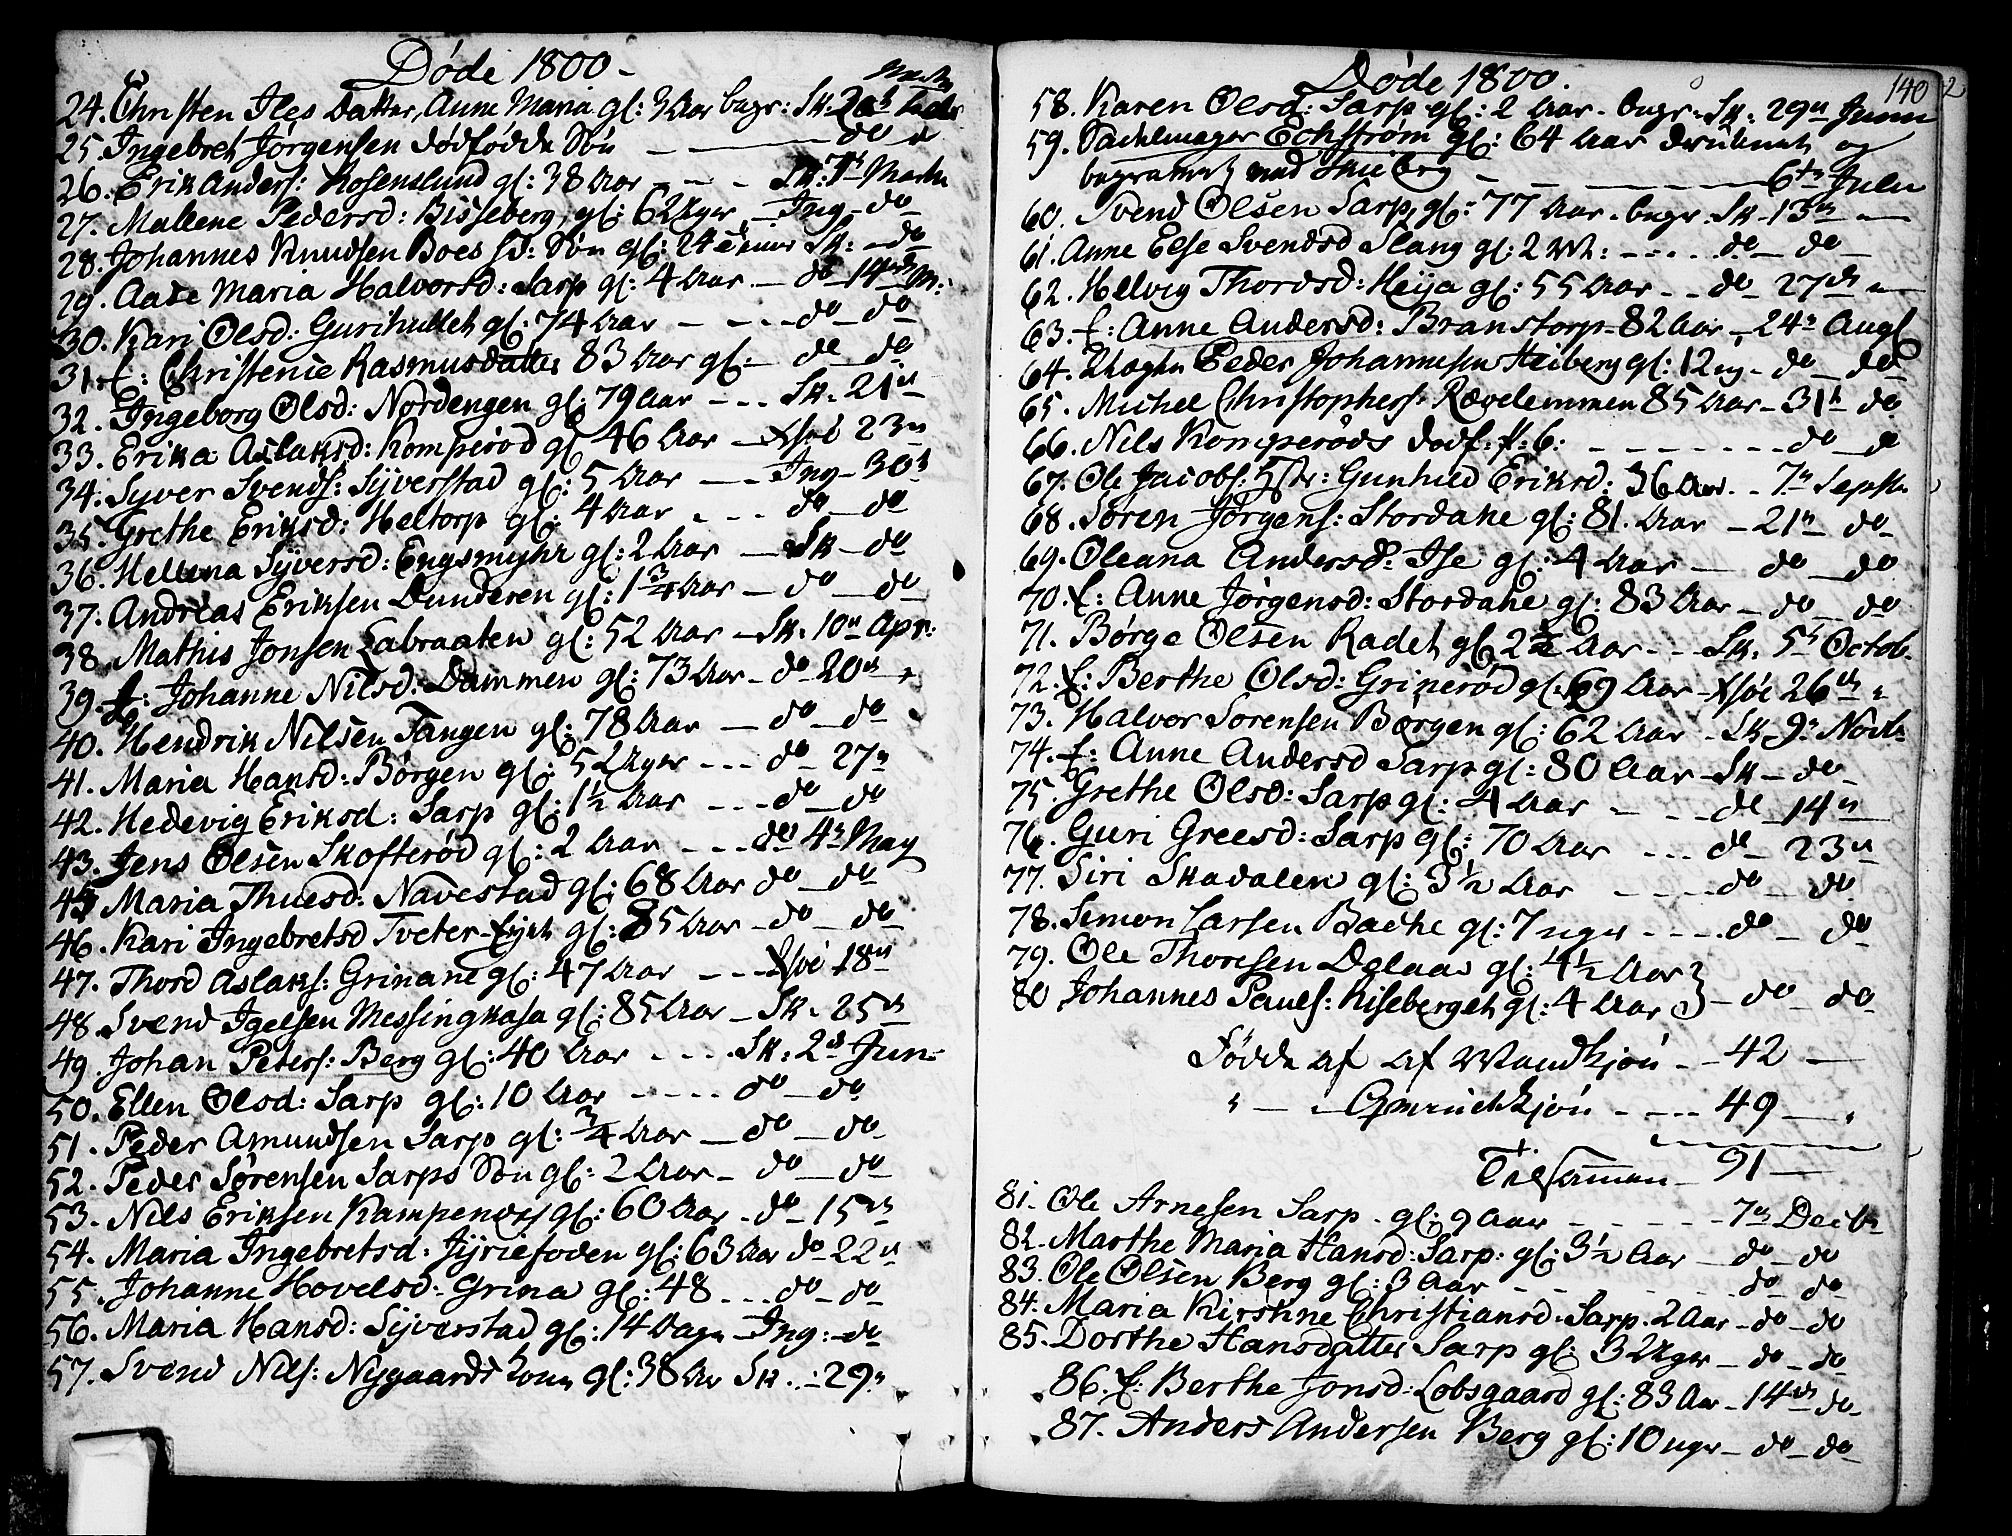 Døde 1800 -
24. Christen Iles Datter, Anne Maria gl: 3 Aar begr: Sk.
25. Ingebret Jørgensen dødfødde Søn — do
26. Erik Anders: Rosenslund gl: 38 Aar - - - Sk: Martii
27. Mallene Pedersd: Bisseberg, gl: 6 Uger — Ing - do
28. Johannes Knudsen Boes Søn gl: 24 Sk: - do
29. Aase Maria Halvorsd: Sarp gl: 4 Aar - do 14 M:
30. Kari Olsd: Gurihullet gl: 74 Aar - - - do - do
31. E: Christenie Rasmusdatter 83 Aar gl: - do - do
32. Ingeborg Olsd: Nordengen gl: 79 Aar - - - Sk. 21
33. Erika Aslaksd: Komperød gl 46 Aar - 23
34. Syver Svends: Syverstad gl: 5 Aar - - Ing - 30
35. Grethe Eriksd: Heltorp gl: 4 Aar - - - do - do
36. Hellena Syversd: Engsmyhr gl: 2 Aar - Sk - do
37. Andreas Eriksen Dunderen gl: 1 3/4 Aar - do - do
38. Mathis Jonsen Labraaten gl: 52 Aar - Sk. 10 Apr:
39. E: Johanne Nilsd: Dammen gl: 73 Aar - do 20
40. Hendrik Nilsen Tangen gl: 78 Aar - do - do
41. Maria Hansd: Børgen gl: 5 Uger - - - do 27
42. Hedevig Eriksd: Sarp gl: 1½ Aar - - - do - do
43. Jens Olsen Skofterød gl: 2 Aar - - - do 4 May
45 Maria Thuesd: Navestad gl: 68 Aar do - do
46. Kari Ingebretsd Tveter gl: 85 Aar - do - do
47. Thord Aslaks: Grinane gl: 47 Aar - - - 18
48. Svend Igelsen Messingkasa gl: 85 Aar - Sk. 25
49. Johan Peters: Berg gl: 40 Aar - - - - Sk: 2 Jun-
50. Ellen Olsd: Sarp gl: 10 Aar - - - - do - do
51. Peder Amundsen Sarp gl: 3/4 Aar - do - do
52. Peder Sørensen Sarps Søn gl: 2 Aar - do - do
53. Nils Eriksen gl: 60 Aar - do - 15
54. Maria Ingebretsd: gl: 63 Aar do - 22
55. Johanne Hovelsd: Grina gl: 48 - - - do - do
56. Maria Hansd: Syverstad gl: 14 Dage - Ing: do
57. Svend Nils: Nygaards gl: 38 Aar Sk. - 29
140
2
Døde 1800.
58. Karen Olsd: Sarp gl: 2 Aar - begr. Sk. 29 Junii
59. Sadelmager Echstrøm gl: 64 Aar druknet og
begravet ved Skieberg - - - 6 Julii
60. Svend Olsen Sarp, gl: 77 Aar - begr Sk - 13
61. Anne Else Svendsd Slang gl: 2 - - - - do - do
62. Helvig Thordsd: Heija gl: 55 Aar - - do - 27
63. E: Anne Andersd: Branstorp - 82 Aar - 24 Aug
64. Peder Johannesen Heiberg gl: 12 - do - do
65. Michel Christophers: Rævelemmen 85 Aar - 31 do
66. Nils Komperøds - - - - do - do
67. Ole Jacobs: Gunhild Eriksd: 36 Aar - - 7 Septb.
68. Søren Jørgens: Stordahe gl: 81. Aar - 21 do
69. Oleana Andersd: Ise gl: 4 Aar - do - do
70. E: Anne Jørgensd: Stordahe gl: 83 Aar - do - do
71. Børge Olsen Radet gl 2½ Aar - - Sk. 5 Octob.
72. E: Berthe Olsd: Grinerød gl: 69 Aar - 26
73. Halvor Sørensen Børgen gl: 62 Aar - Sk 9
74. E: Anne Andersd Sarp gl: 80 Aar - Sk - do
75. Grethe Olsd: Sarp gl: 4 Aar - - - do 14
76. Guri Greesd: Sarp gl: 70 Aar - - - do - 23
77. Siri Skadalen gl: 3½ Aar - - - - do - do
78. Simon Larsen Bache gl: 7 - - - - do - do
79. Ole Thoresen gl: 4½ Aar }
80 Johannes Pauls: Kiseberget gl: 4 Aar } - do - do
Fødde af - - 42 —
" — - - - - 49 —
Tilsammen - 91 —
81. Ole Arnesen Sarp - gl: 9 Aar - - - - - 7
82. Marthe Maria Hansd: Sarp: gl: 3½ Aar - do - do
83. Ole Olsen Berg gl: 3 Aar - - - - do - do
84. Maria Kirstine Christiansd: Sarp. 2 Aar - do - do
85. Dorthe Hansdatter Sarp gl: 3 Uger - do - do
86. E: Berthe Jonsd: Lobsgaard gl: 83 Aar - 14 do
87. Anders Andersen Berg gl: 10 - do - do